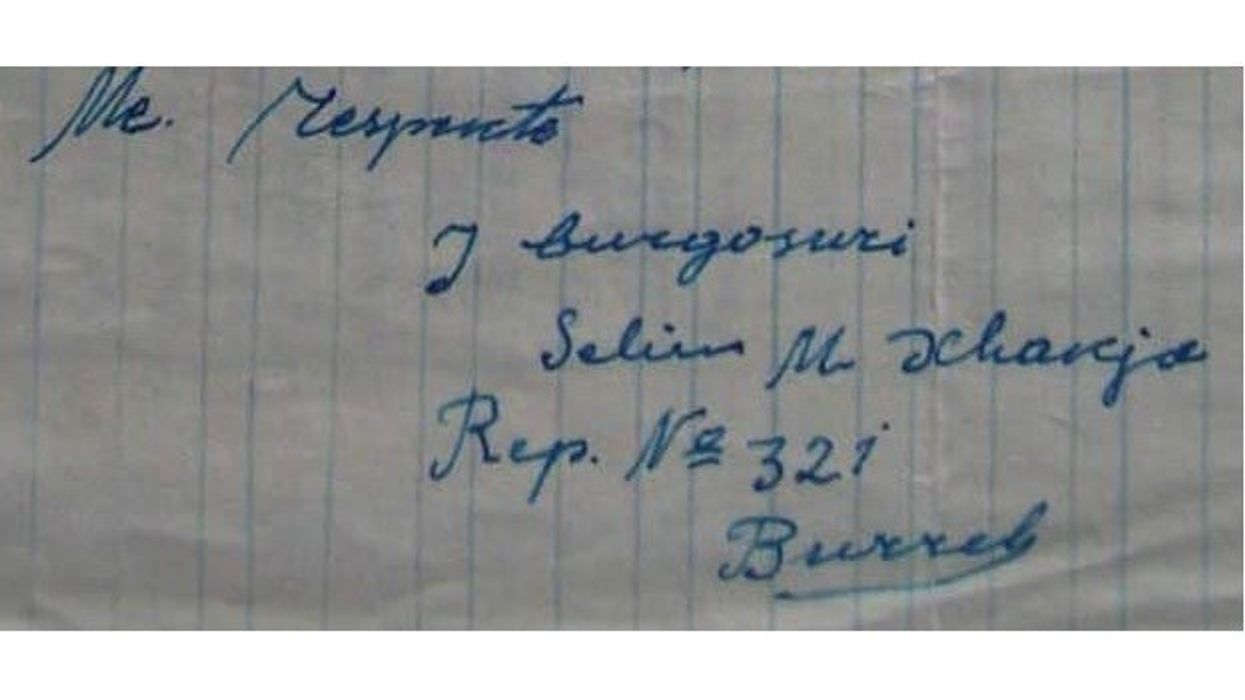 Me. respekte
I burgosuri
Selim M Xhavxja
Rep. No 321
Burrel